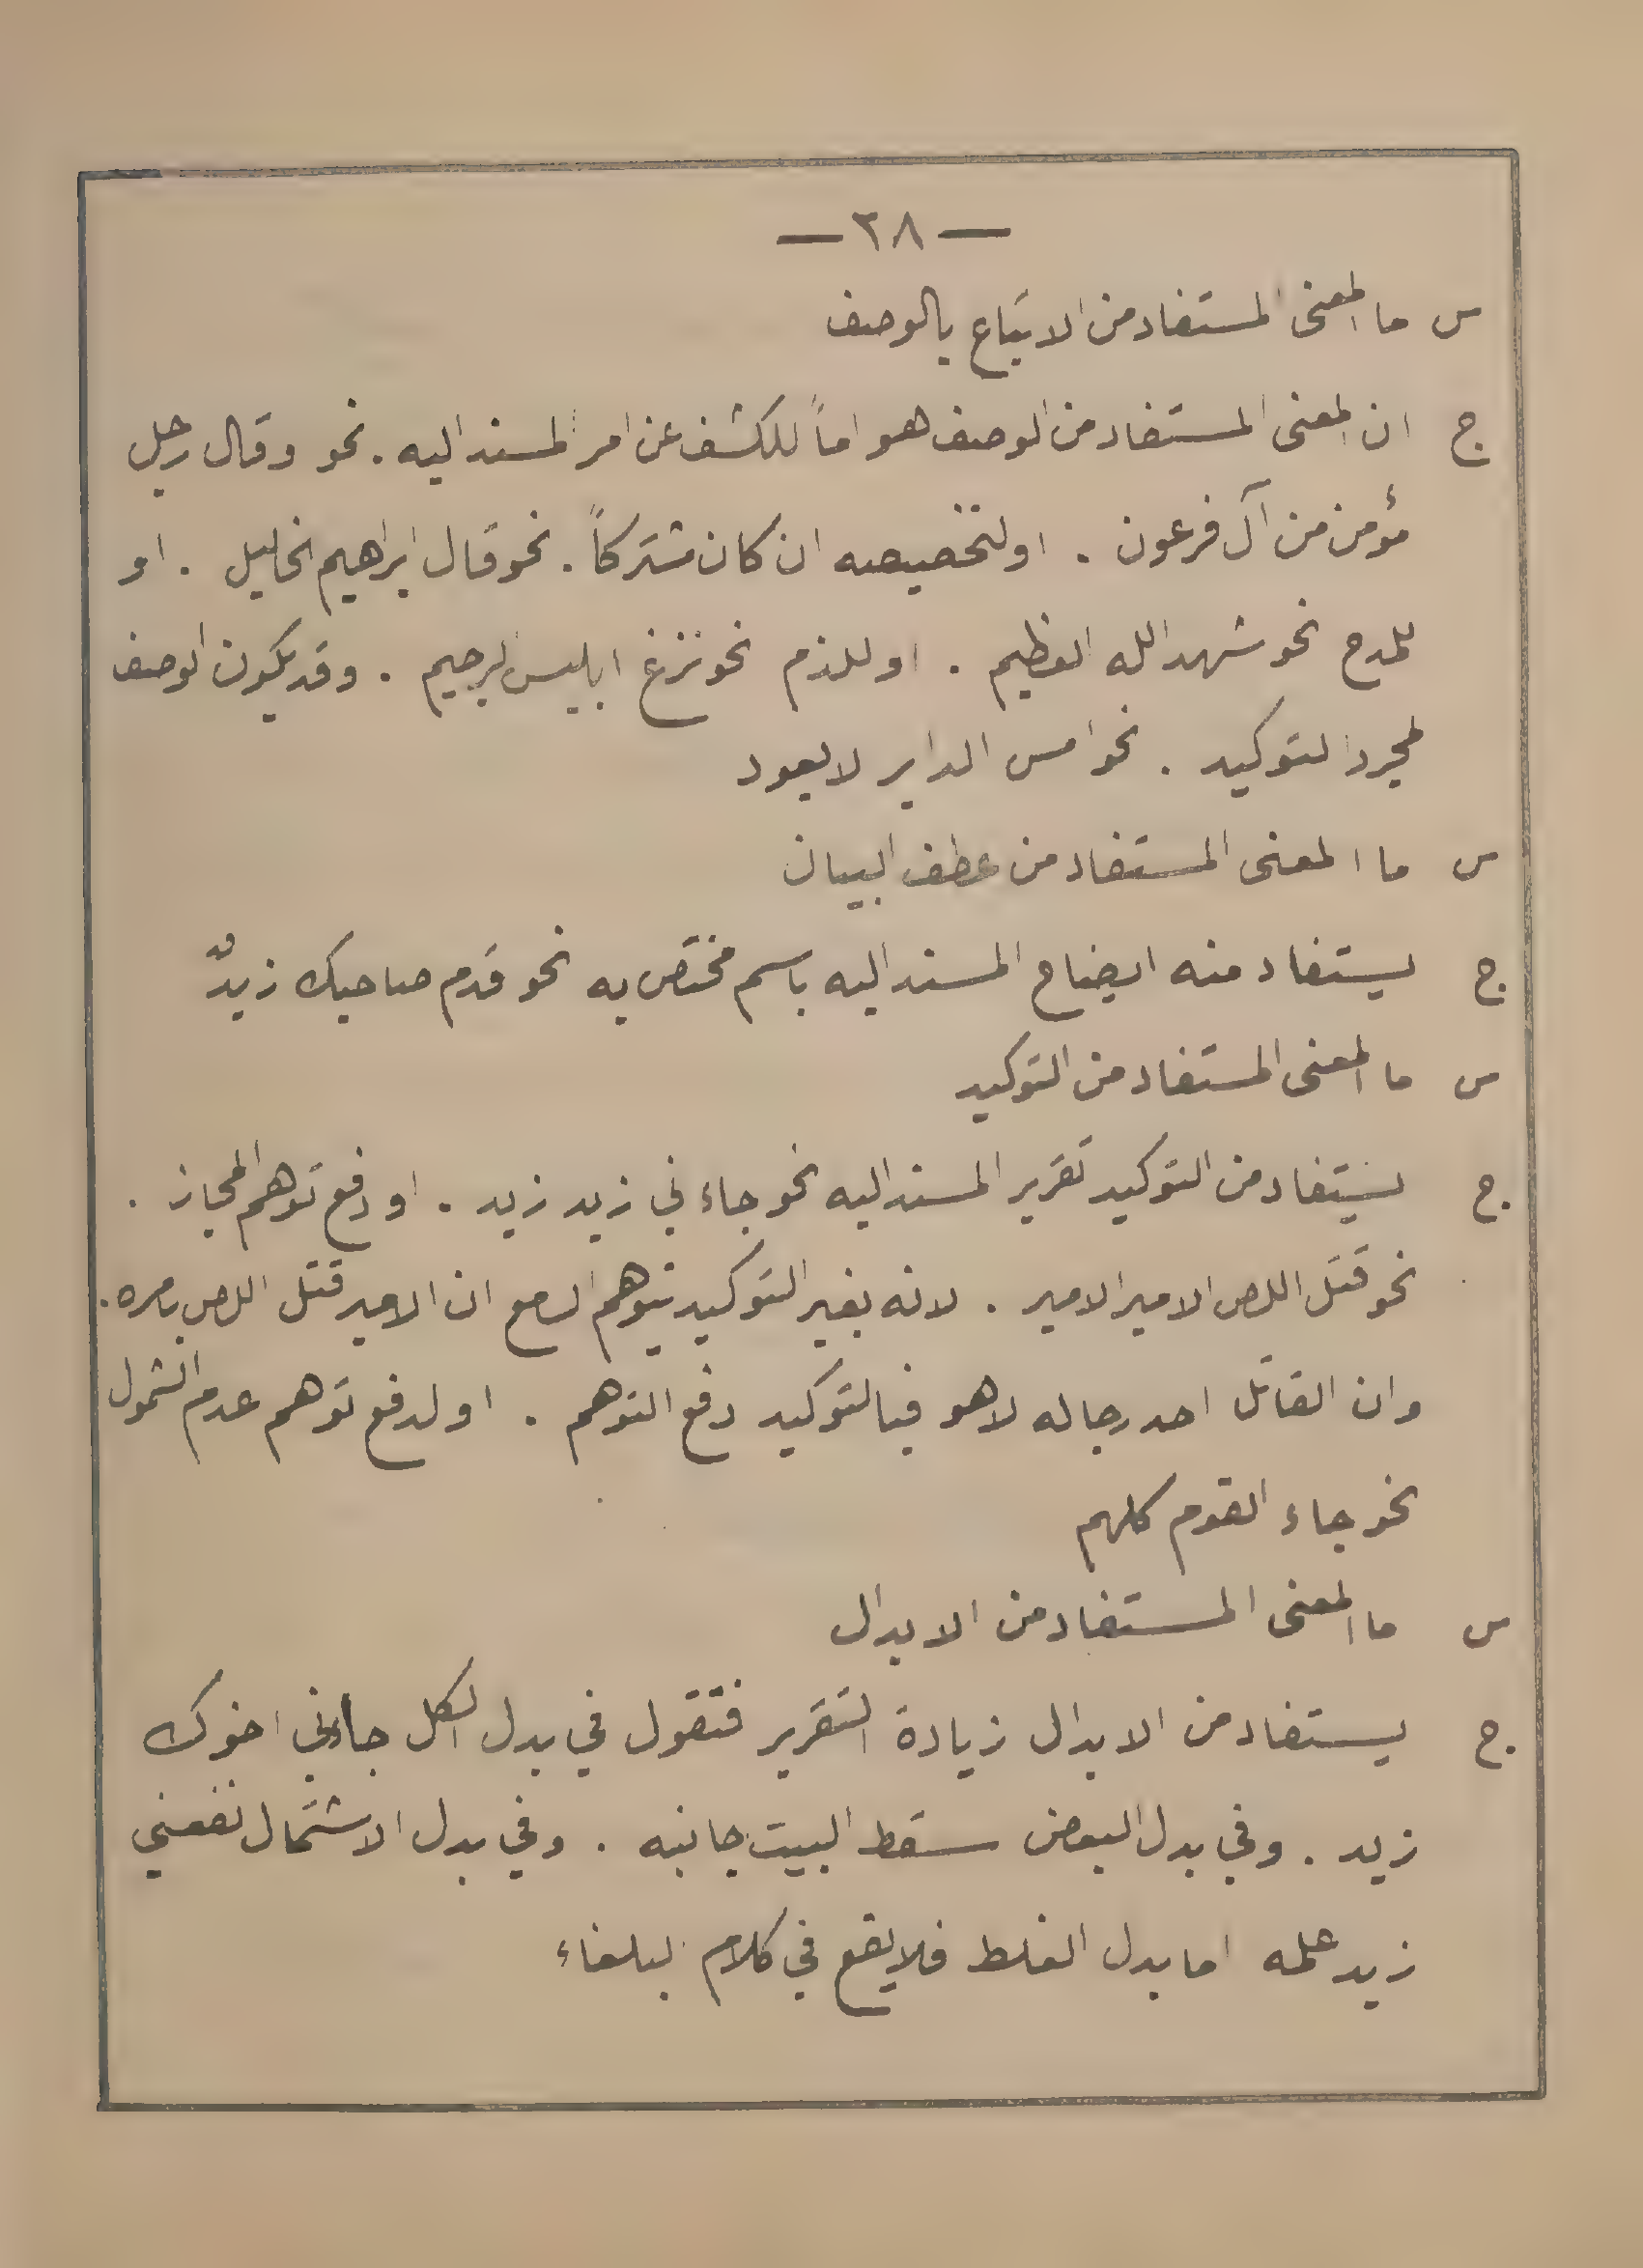 — ٢٨ —
س ما المعنى المستفاد من الاتباع بالوصف
ج ان المعنى المستفاد من الوصف هو اماً للكشف عن امر المسند اليه . نحو وقال رجل
مؤمن من آل فرعون . او لتخصيصه ان كان مشتركاً . نحو قال ابراهيم الخليل . او
للمدح نحو شهد الله العظيم . او للذم نحو نزغ ابليس الرجيم . وقد يكون الوصف
لمجرد التوكيد . نحو امس الدابر لا يعود
س ما المعنى المستفاد من عطف البيان
ج يستفاد منه ايضاح المسند اليه باسم مختص به نحو قدم صاحبك زيدٌ
س ما المعنى المستفاد من التوكيد
ج. يستفاد من التوكيد تقرير المسند اليه نحو جاءني زيد زيد . او دفع توهم المجاز .
نحو قتل اللص الامير الامير . لانه بغير التوكيد يتوهم السامع ان الامير قتل اللص بامره .
وان القاتل احد رجاله لا هو فبالتوكيد دفع التوهم . او لدفع توهم عدم الشمول
نحو جاء القوم كلهم
س ما المعنى المستفاد من الابدال
ج. يستفاد من الابدال زيادة التقرير فتقول في بدل الكل جاءني اخوك
زيد . وفي بدل البعض سقط البيت جانبه . وفي بدل الاشتمال نفعني
زيد علمه اما بدل الغلط فلا يقع في كلام البلغاء